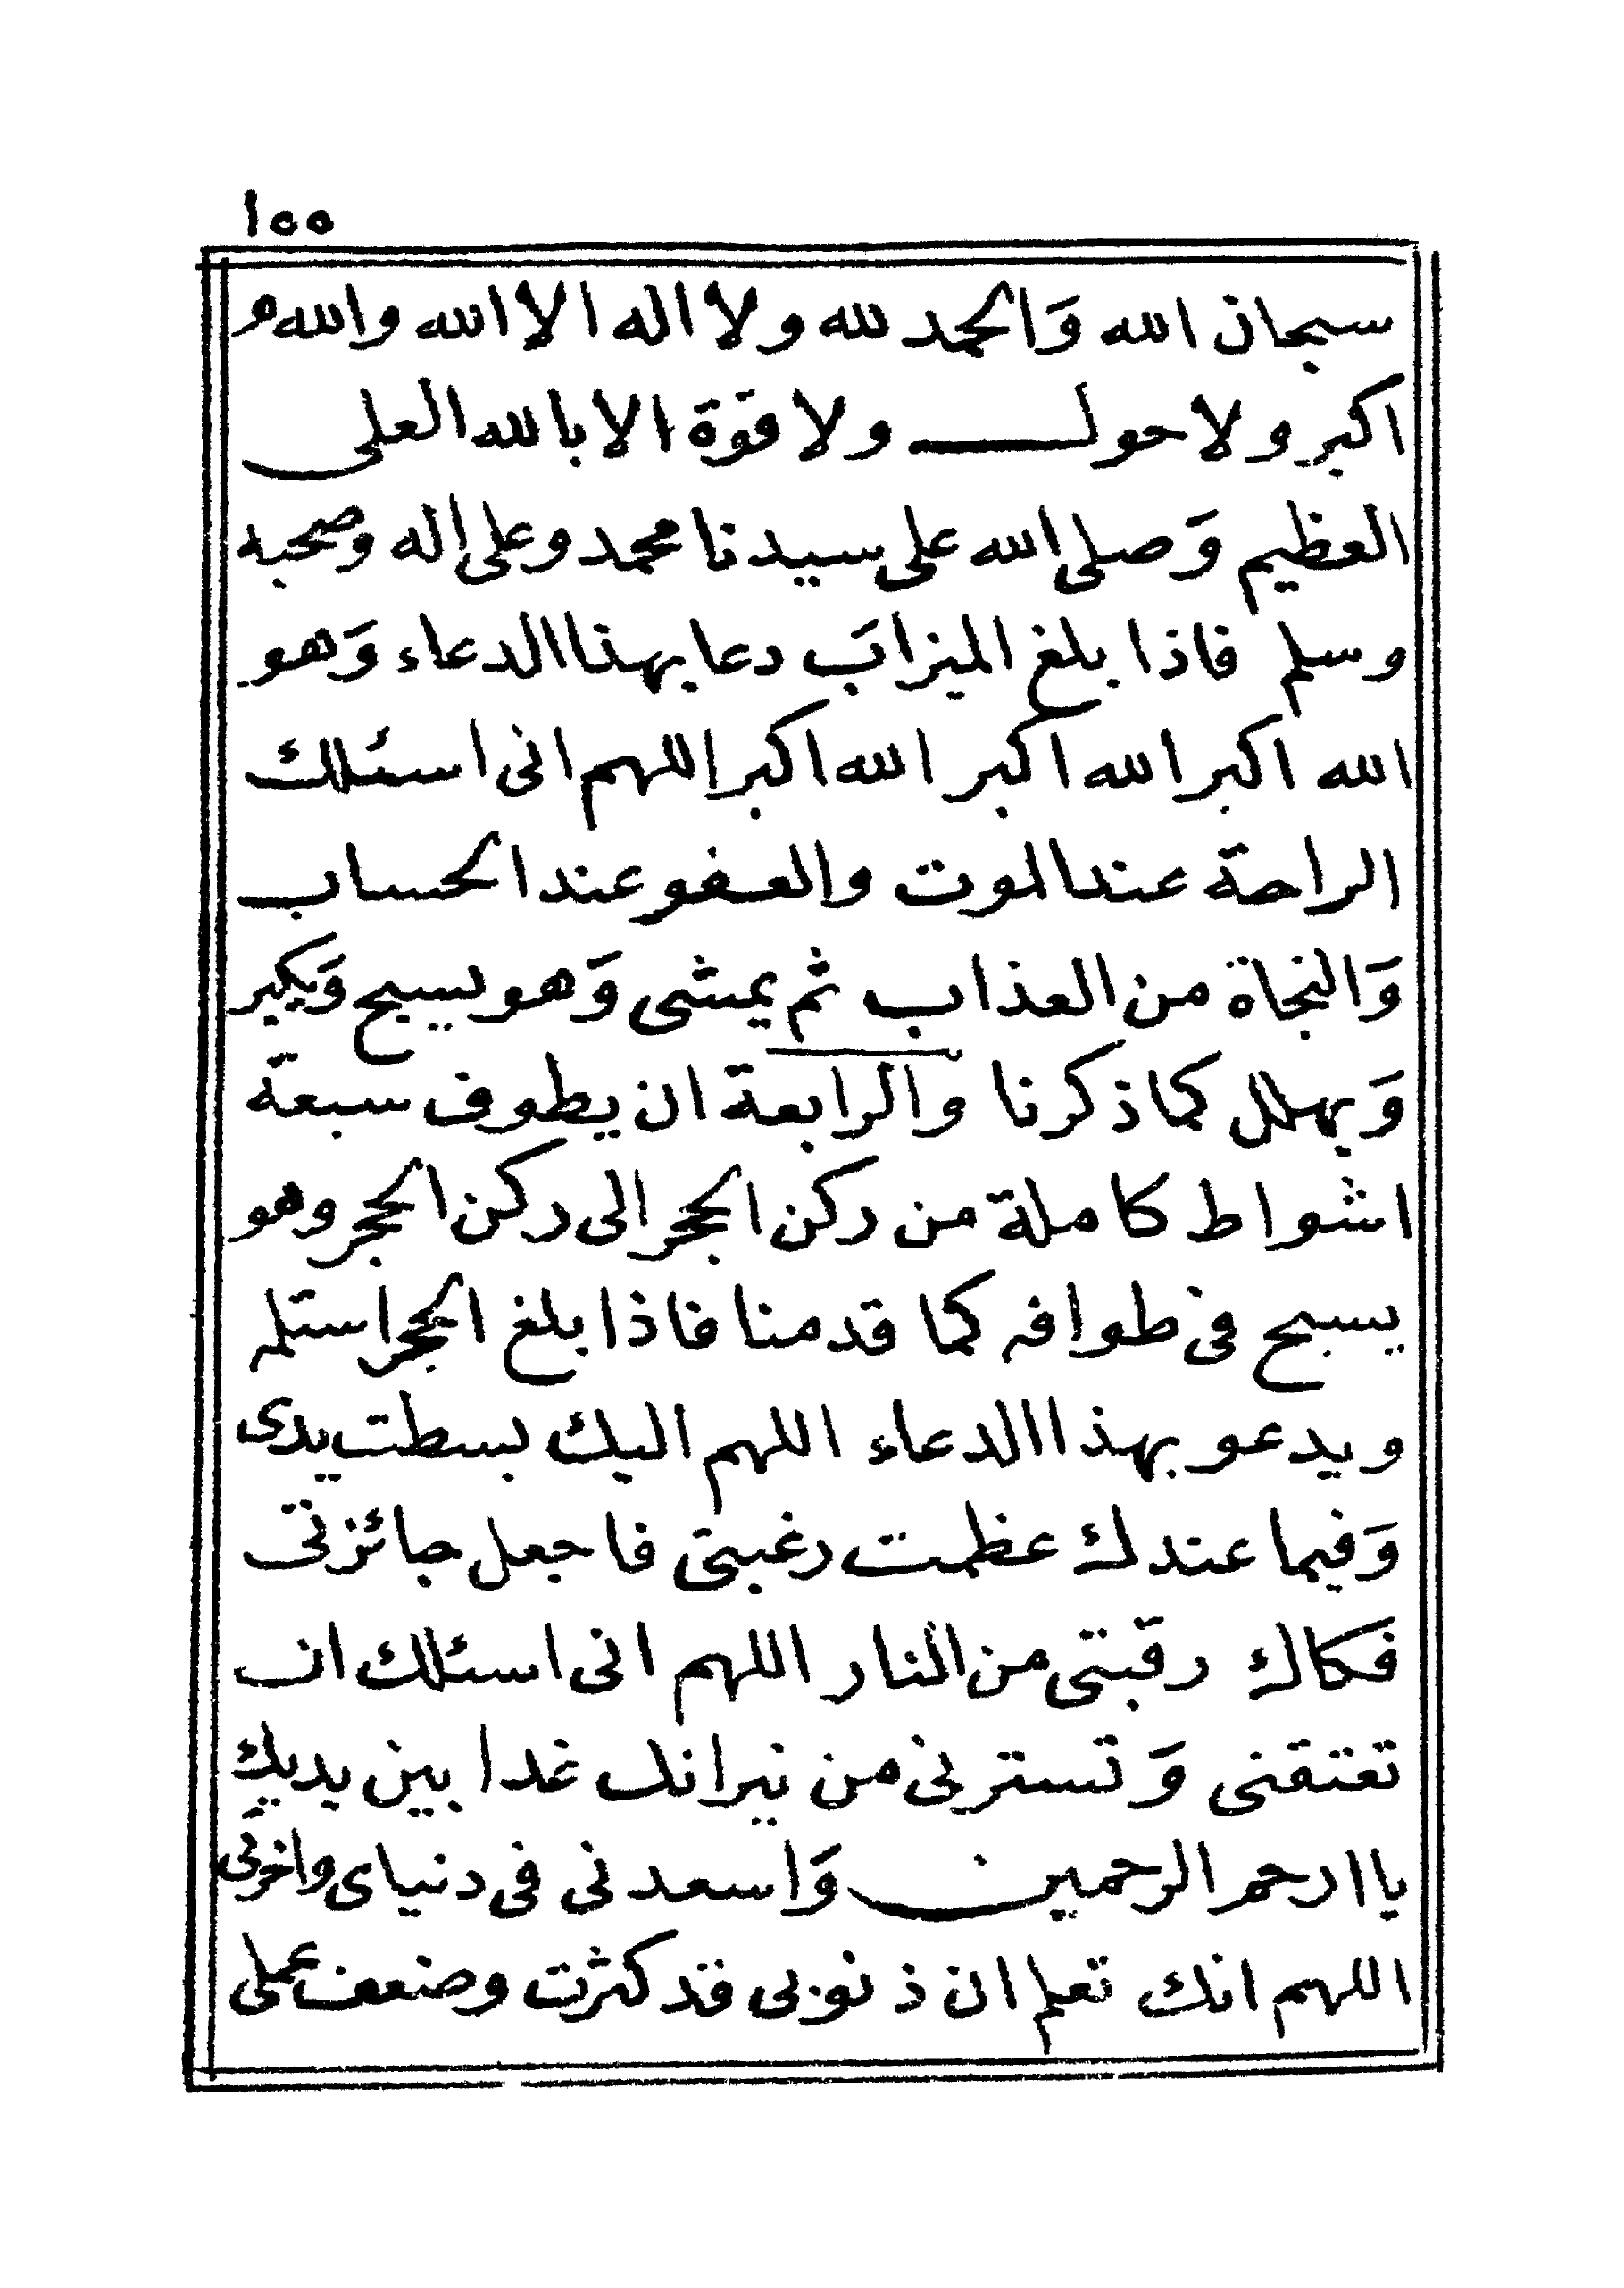 ١٥٥
سبحان الله وَالحمد لله ولا اله الا الله والله
اكبر ولا حول ولا قوّة الا بالله العلى
العظيم وَصلى الله على سيدنا محمد وعلى اله وصحبه
وسلم فاذا بلغ الميزابَ دعا بهذا الدعاء وَهو
الله اكبر الله اكبر الله اكبر اللهم انى اسئلك
الراحة عند الموت والعفو عند الحساب
وَالنجاة من العذاب ثم يمشى وَهو يسبح وَيكبر
وَيهلل كما ذكرنا والرابعة ان يطوف سبعة
اشواط كاملة من ركن الحجر الى ركن الحجر وهو
يسبح فى طوافه كما قدمنا فاذا بلغ الحجر استلمه
ويدعو بهذا الدعاء اللهم اليك بسطت يدى
وَفيما عندك عظمت رغبتى فاجعل جائزتى
فكاك رقبتى من النار اللهم انى اسئلك ان
تعتقنى وَتسترنى من نيرانك غدا بين يديك
يا ارحم الرحمين وَاسعدنى فى دنياى واخرتى
اللهم انك تعلم ان ذنوبى قد كثرت وضعف عملى